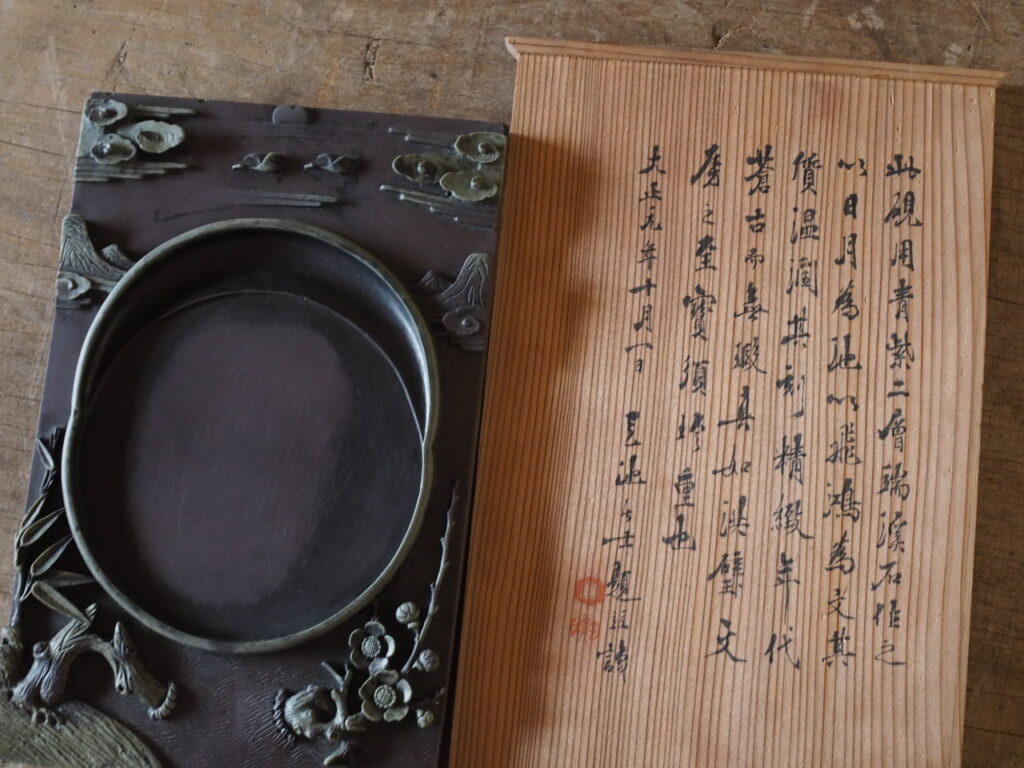 此硯用青紫二層端溪石作之
以日月為池以飛鴻為文其
質温潤其刻精緻年代
蒼古而無瑕真如洪璧文
房之至寶須珍重也
大正元年十月一日
題